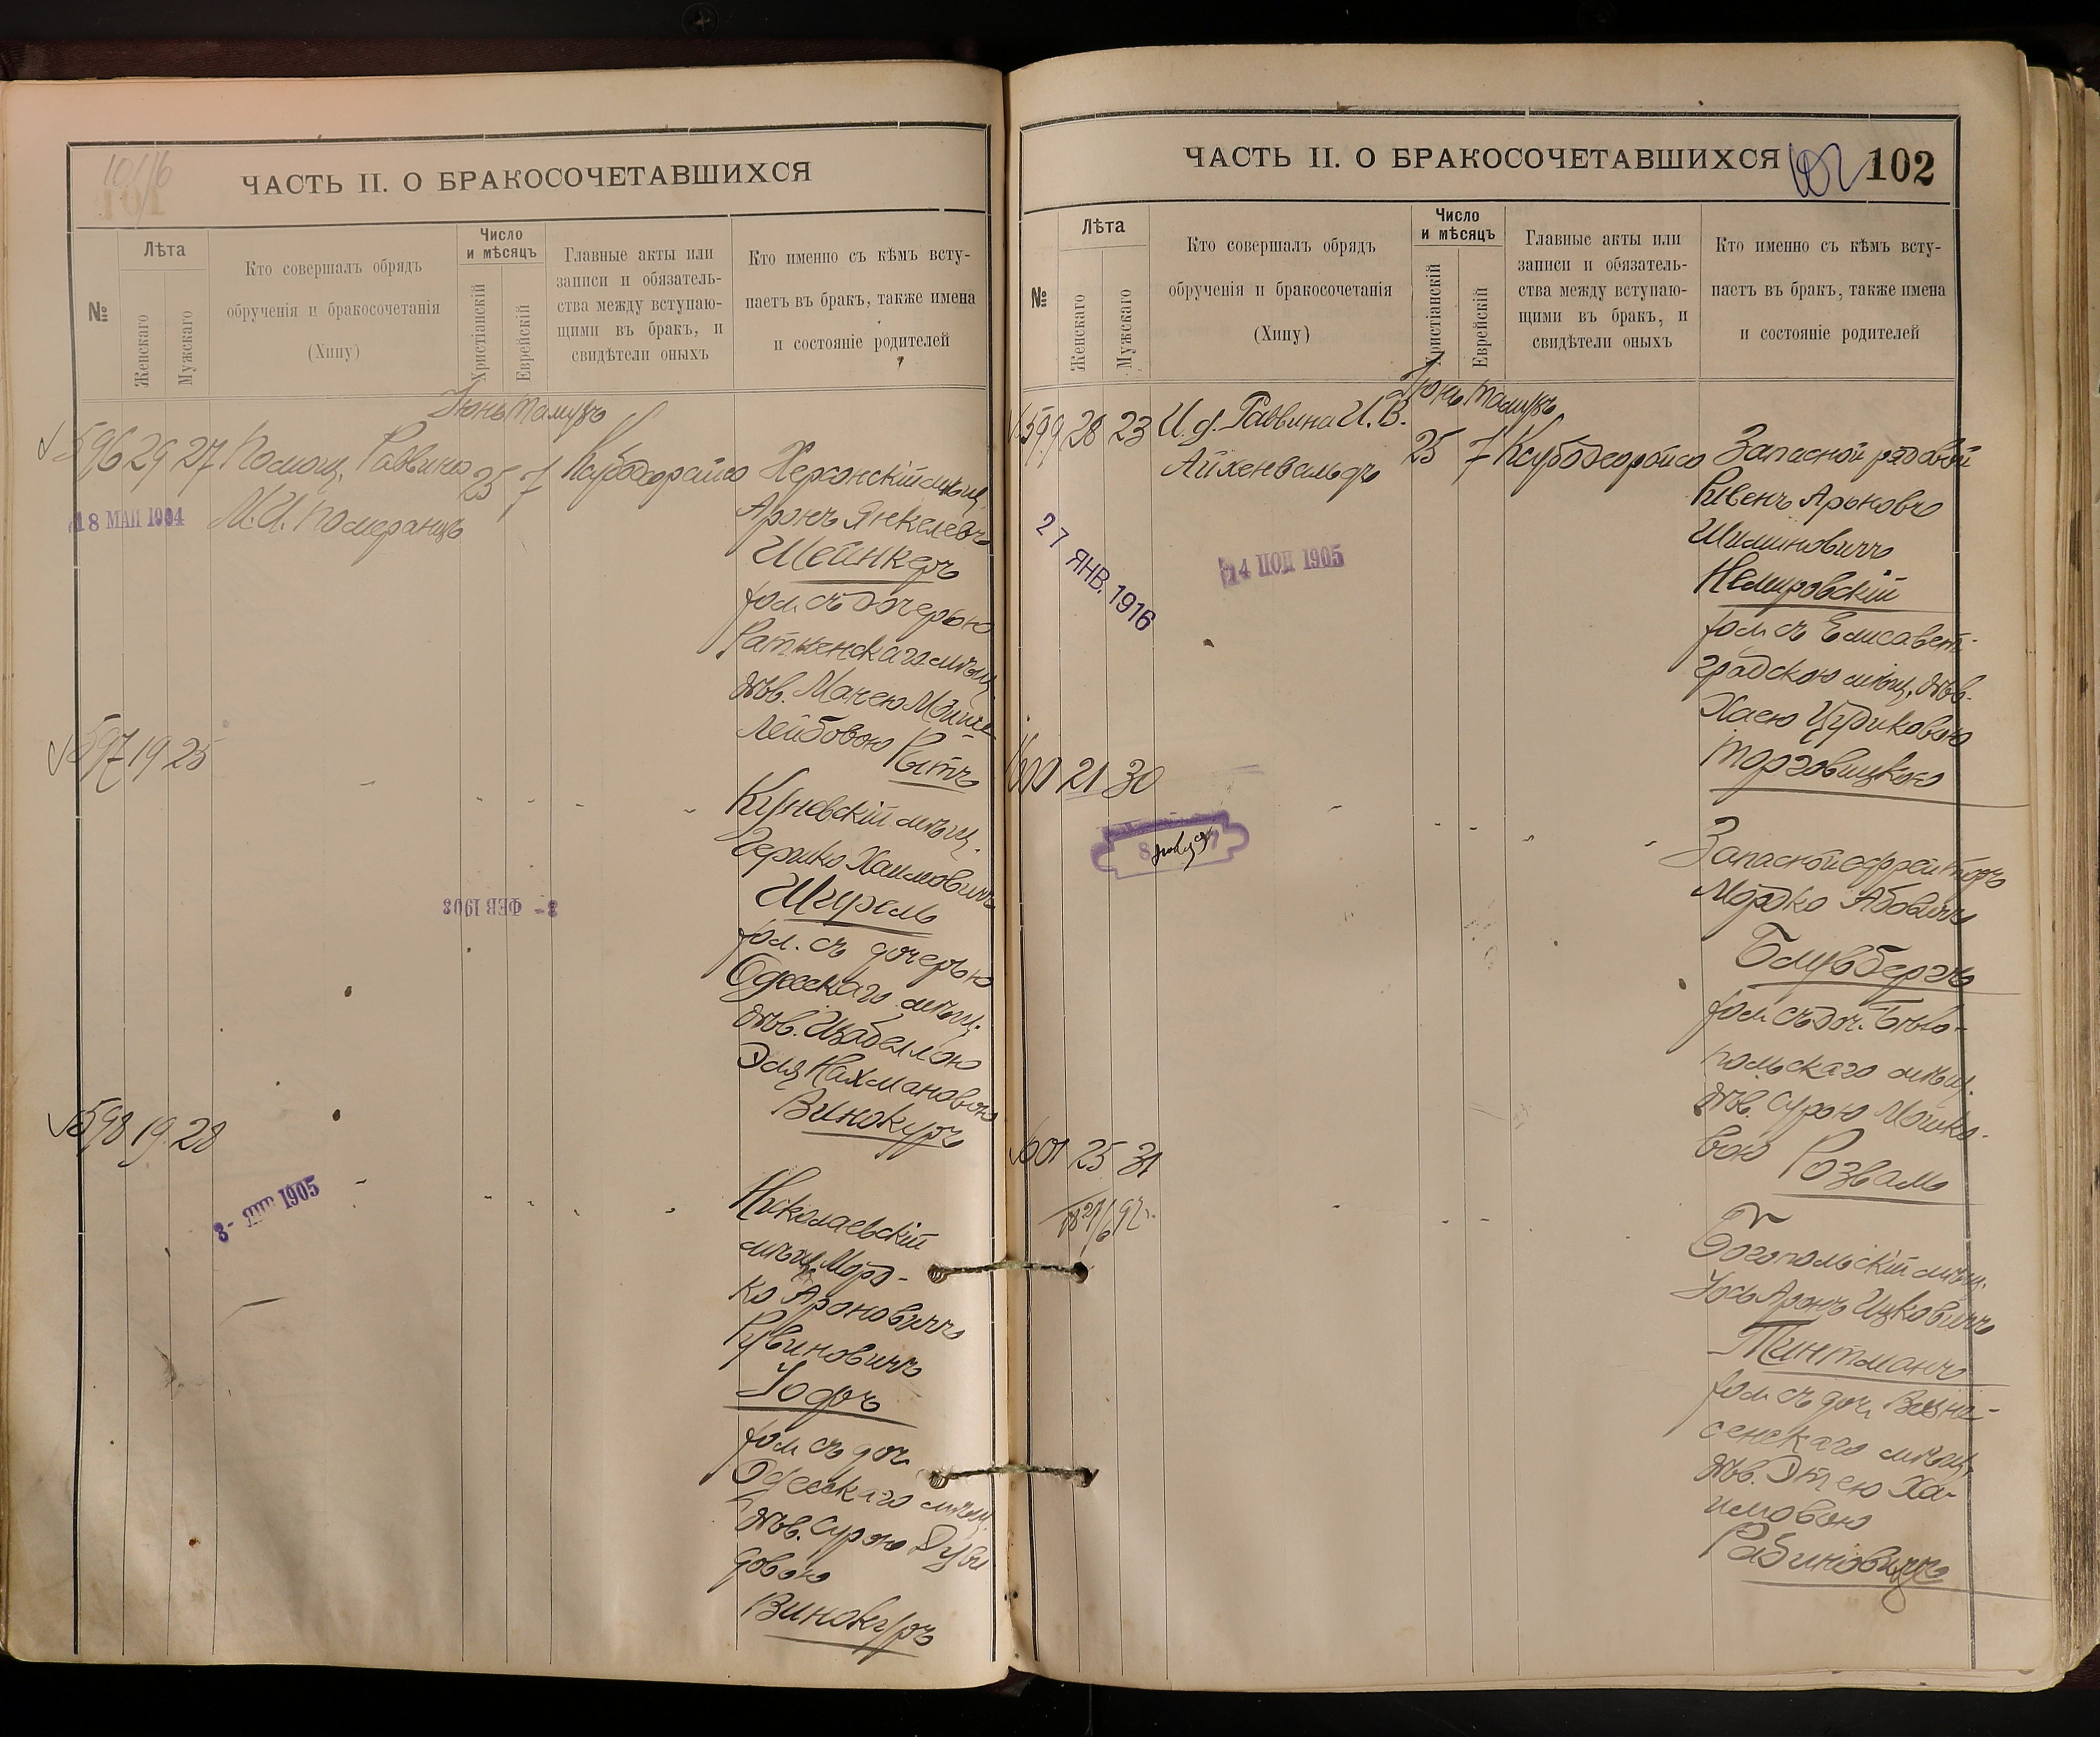 101/6
101
ЧАСТЬ II. О БРАКОСОЧЕТАВШИХСЯ
№
Лѣта
Женскаго
Мужскаго
Кто совершалъ обрядъ
обрученія и бракосочетанія
(Хипу)
Число
и мѣсяцъ
Христіанскій
Еврейскій
Главные акты или
записи и обязатель-
ства между вступаю-
щими въ бракъ, и
свидѣтели оныхъ
Кто именно съ кѣмъ всту-
паетъ въ бракъ, также имена
и состояніе родителей
Іюнь Тамузъ
596 29 27 Помощ. Раввина 25 7
М. И. Померанцъ
18 МАЙ 1904
Херсонскій мѣщ.
Аронъ Янкелевъ
Шейнкеръ
хол. съ дочерью
Ратненскаго мѣщ.
дѣв. Манею Мошко
Лейбовою Рытъ
597 19 25
Куневскій мѣщ.
Гершко Хаимовичъ
Шгурель
хол. съ дочерью
Одесскаго мѣщ.
дѣв. Изабеллою
Эля Нахмановою
Винокуръ
8- ФЕВ 1903
598 19 28
3- ЯНВ 1905
Николаевскій
мѣщ. Морд-
ко Ароновичъ
Рувиновичъ
Іофъ
хол. съ доч.
Одесскаго мѣщ.
дѣв. Сурою Дуви
довою
Винокуръ
ЧАСТЬ II. О БРАКОСОЧЕТАВШИХСЯ
102
102
№
Лѣта
Женскаго
Мужскаго
Кто совершалъ обрядъ
обрученія и бракосочетанія
(Хипу)
Число
и мѣсяцъ
Христіанскій
Еврейскій
Главные акты или
записи и обязатель-
ства между вступаю-
щими въ бракъ, и
свидѣтели оныхъ
Кто именно съ кѣмъ всту-
паетъ въ бракъ, также имена
и состояніе родителей
Іюнь Тамузъ
599 28 23 И. д. Раввина И. В.
Айхенвальдъ
25 7
27 ЯНВ. 1916
14 1905
Запасной рядовой
Рувенъ Ароновъ
Шиминовичъ
Немировскій
хол. съ Елисавет-
градскою мѣщ. дѣв.
Хаею Цудиковою
Торговицкою
600 21 30
Запасной ефрейторъ
Мордко Абовичъ
Блувбергъ
хол. съ доч. Бѣло-
польскаго мѣщ.
дѣв. Сурою Мошко-
вою Розваль
601 25 31
Богопольскій мѣщ.
Іось Аронъ Ицковичъ
Тинтманъ
хол. съ доч. Возне-
сенскаго мѣщ.
дѣв. Этею Ха-
имовою
Рабиновичъ